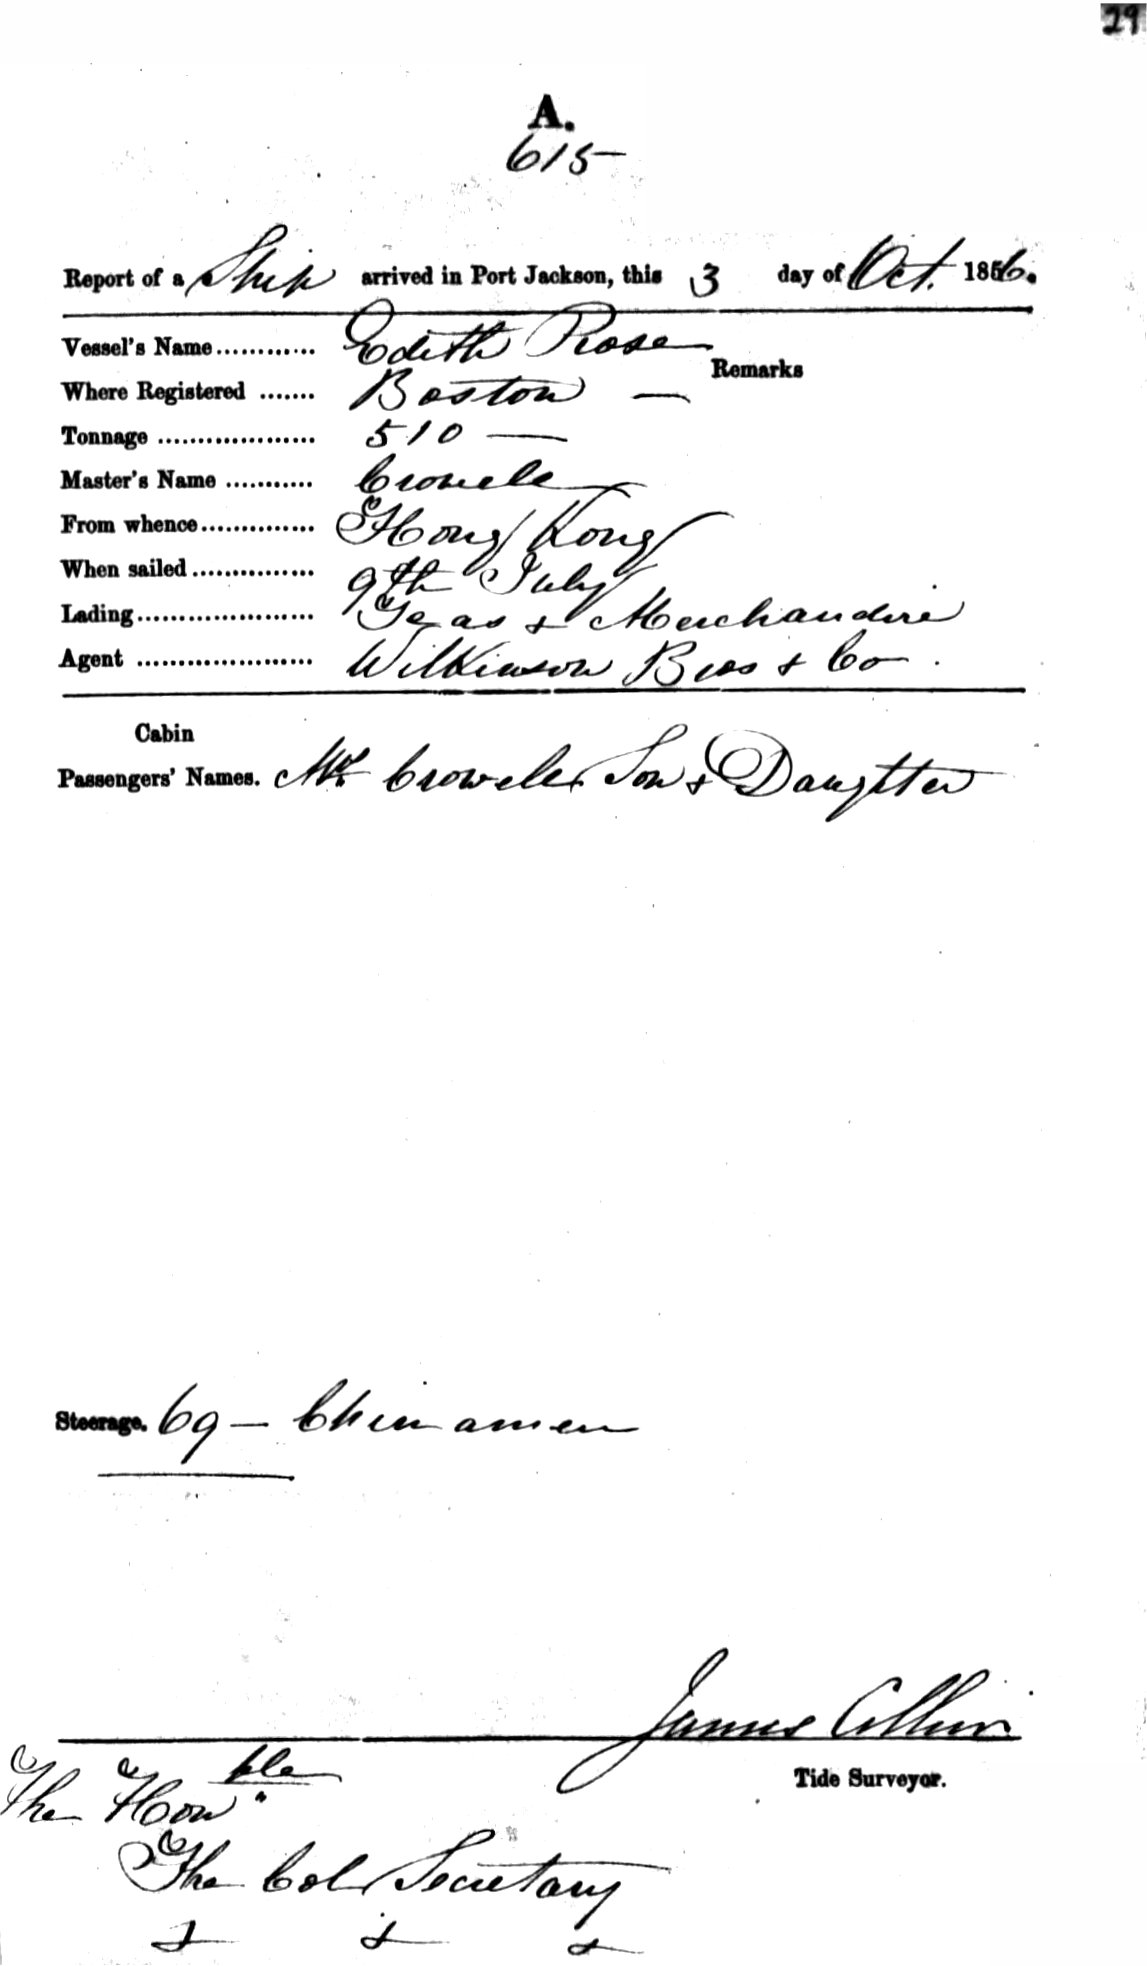 29
A.
615
Report of a Ship arrived in Port Jackson, this 3 day of Oct. 1856.
Vessel's Name............ Edith Rose
Remarks
Where Registered ....... Boston —
Tonnage .................... 510 —
Master's Name ........... Crowele
From whence.............. Hong Kong
When sailed............... 9th July
Lading...................... Teas & Merchandise
Agent ...................... Wilkinson Bros & Co.
Cabin
Passengers' Names. Mrs Crowele, Son & Daughter
Steerage. 69 — Chinamen
James Collin
Tide Surveyor.
The Honble
The Col. Secretary
& & &